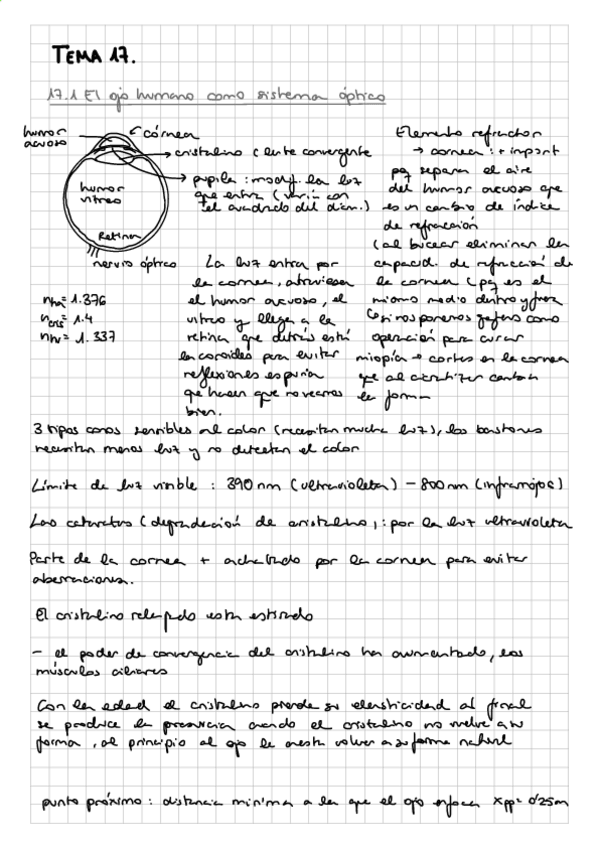 TEMA 17.
17.1 El ojo humano como sistema óptico
humor
acuoso
córnea
cristalino (lente convergente
pupila : modif. la luz
que entra (varía con
el cuadrado del diám.)
humor
vitreo
Retina
nervio óptico
nha = 1.376
ncris = 1.4
nhv = 1.337
La luz entra por
la cornea, atraviesa
el humor acuoso, el
vitreo y llega a la
retina que detrás está
la coroides para evitar
reflexiones espuria
que hacen que no veamos
bien.
Elemento refractor
→ cornea : + import
pq separa el aire
del humor acuoso que
es un cambio de índice
de refracción
(al bucear eliminan la
capacid. de refracción de
la cornea (pq es el
mismo medio dentro y fuera
Cosi nos ponemos gafas como
operación para curar
miopía → cortes en la cornea
que al cicatrizar cambia
la forma
3 tipos conos sensibles al color (necesitan mucha luz), los bastones
necesitan menos luz y no detectan el color
Límite de luz visible : 390 nm (ultravioleta) – 800 nm (infrarrojos)
Las cataratas (degradación de cristalino) : por la luz ultravioleta
Parte de la cornea + achatada por la cornea para evitar
aberraciones.
El cristalino relajado esta estirado
– el poder de convergencia del cristalino ha aumentado, los
músculos ciliares
Con la edad el cristalino pierde su elasticidad al final
se produce la presbicia cuando el cristalino no vuelve a su
forma, al principio al ojo le cuesta volver a su forma natural
punto próximo : distancia mínima a la que el ojo enfoca xpp = 0'25m